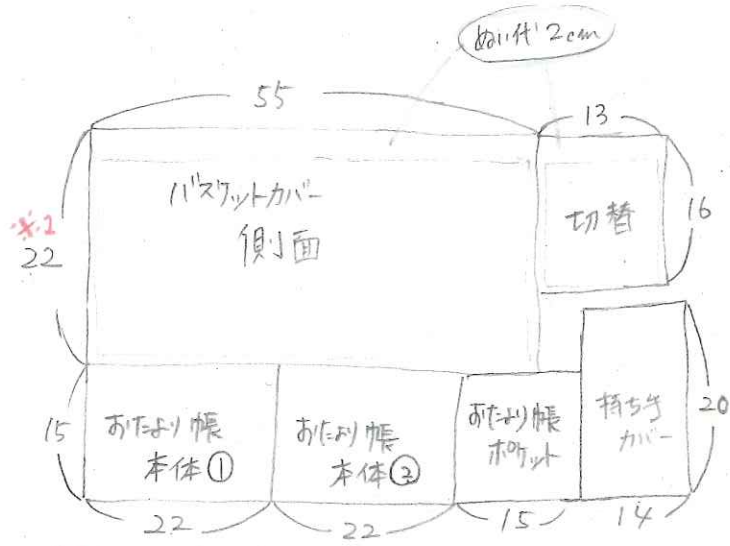 ぬい代 2cm
55
13
※1
22
バスケットカバー
側面
切替
16
15
おたより帳
本体①
おたより帳
本体②
おたより帳
ポケット
持ち手
カバー
20
22
22
15
14